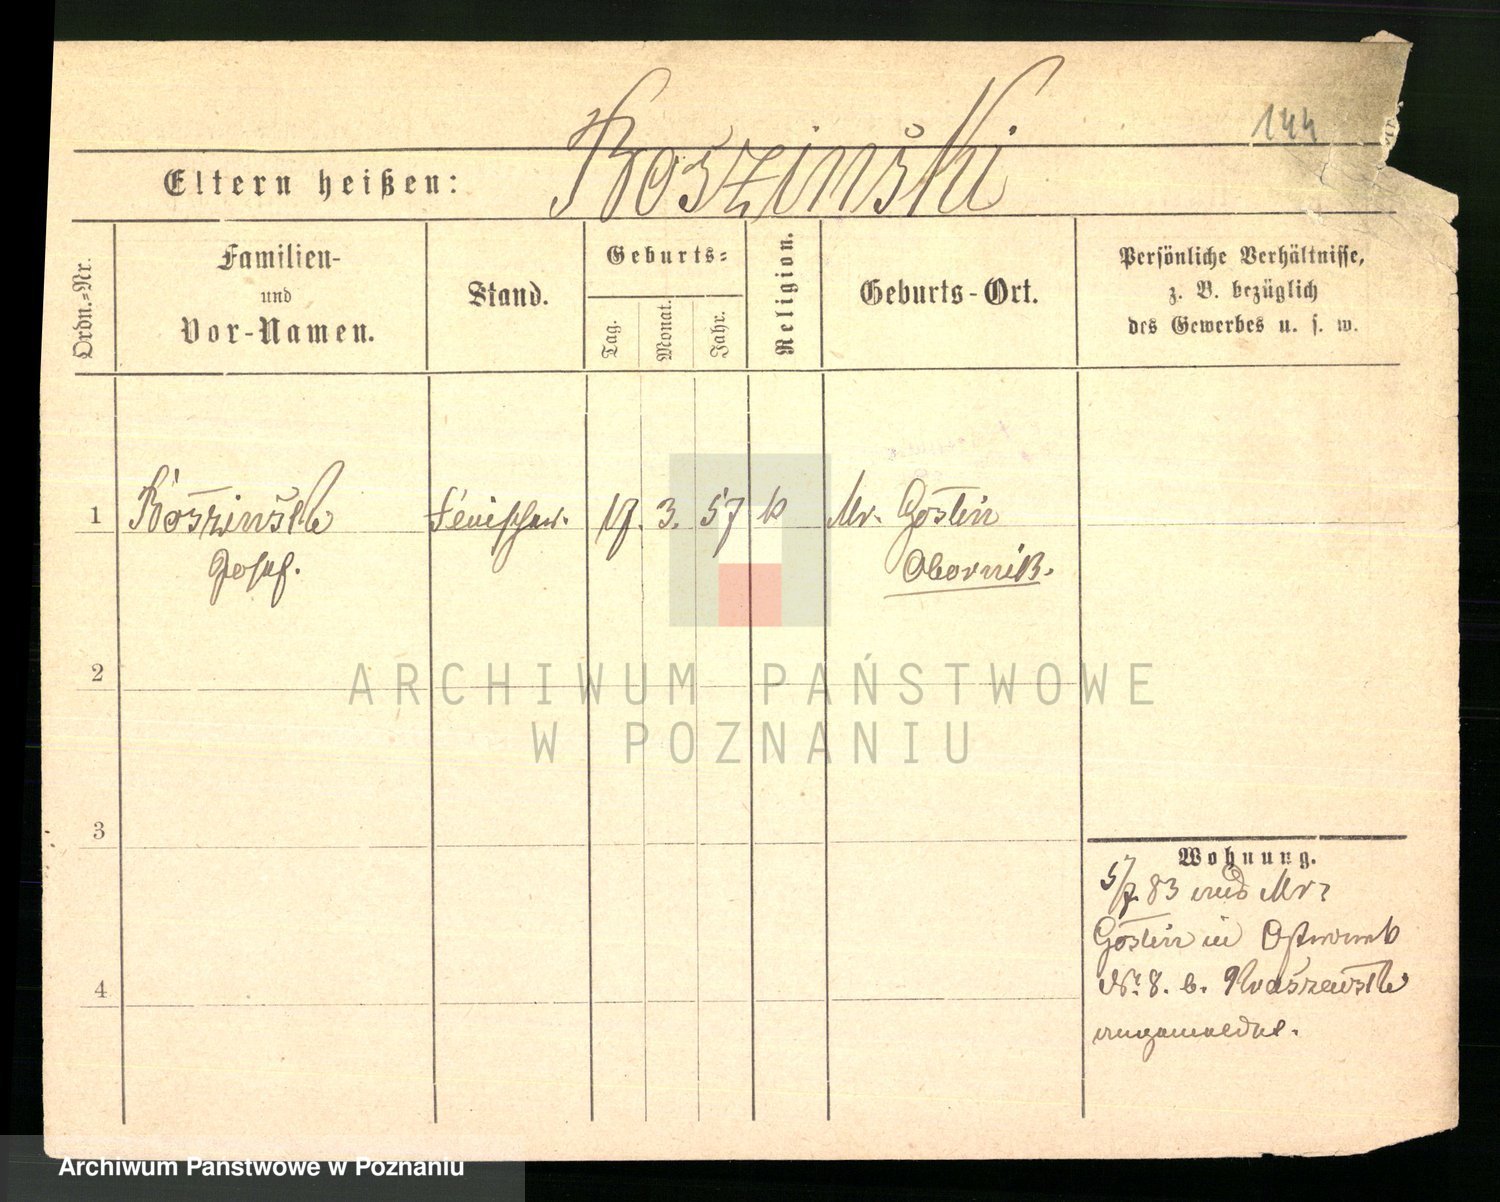 144
Eltern heißen: Koszinski
Ordn.=Nr.
Familien-
und
Vor-Namen.
Stand.
Geburts=
Tag.
Monat.
Jahr.
Religion.
Geburts-Ort.
Persönliche Verhältnisse,
z. B. bezüglich
des Gewerbes u. s. w.
1 Koszinski 17. 3. 57 k Mr. Goslin
Josef. Obornik.
2
3
4
Wohnung.
5/7. 83 aus Mr.
Goslin in
No. 8. b.
angemeldet.
ARCHIWUM PAŃSTWOWE
W POZNANIU
Archiwum Państwowe w Poznaniu